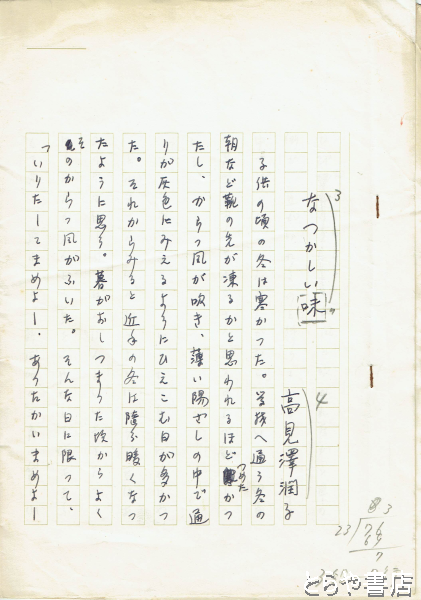 3
なつかしい味
4
高見澤潤子
子供の頃の冬は寒かった。学校へ通う冬の
朝など靴の先が凍るかと思われるほどつめたかっ
たし、からっ風が吹き、薄い陽ざしの中で通
りが灰色にみえるようにひえこむ日が多かっ
た。それからみると近年の冬は随分暖くなっ
たように思う。暮がおしつまった頃からよく
そのからっ風がふいた。そんな日に限って、
「いりたてまめよー、あったかいまめよー
83
23 76
69
7
とらや書店